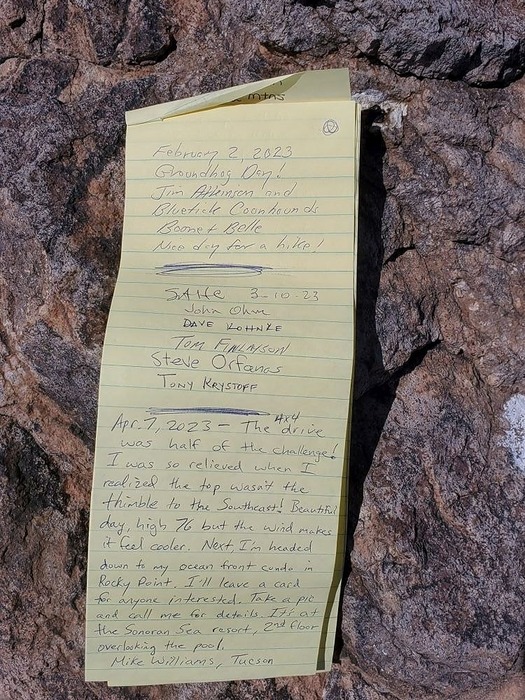 mtns
February 2, 2023
Groundhog Day!
Jim Atkinson and
Bluetick Coonhounds
Boone & Belle
Nice day for a hike!
SAHC 3-10-23
John Ohm
DAVE KOHNKE
TOM FINLAYSON
Steve Orfanos
TONY KRYSTOFF
Apr 7, 2023 - The 4x4 drive
was half of the challenge!
I was so relieved when I
realized the top wasn't the
thimble to the Southeast! Beautiful
day, high 76 but the wind makes
it feel cooler. Next, I'm headed
down to my ocean front condo in
Rocky Point. I'll leave a card
for anyone interested. Take a pic
and call me for details. It's at
the Sonoran Sea resort, 2nd floor
overlooking the pool.
Mike Williams, Tucson